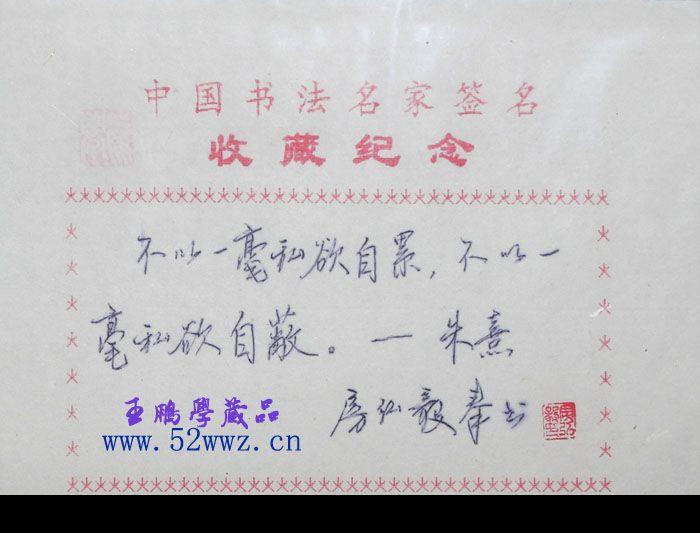 中国书法名家签名
收藏纪念
不以一毫私欲自累，不以一
毫私欲自蔽。— 朱熹
房弘毅奉书
王鹏學藏品
www.52wwz.cn